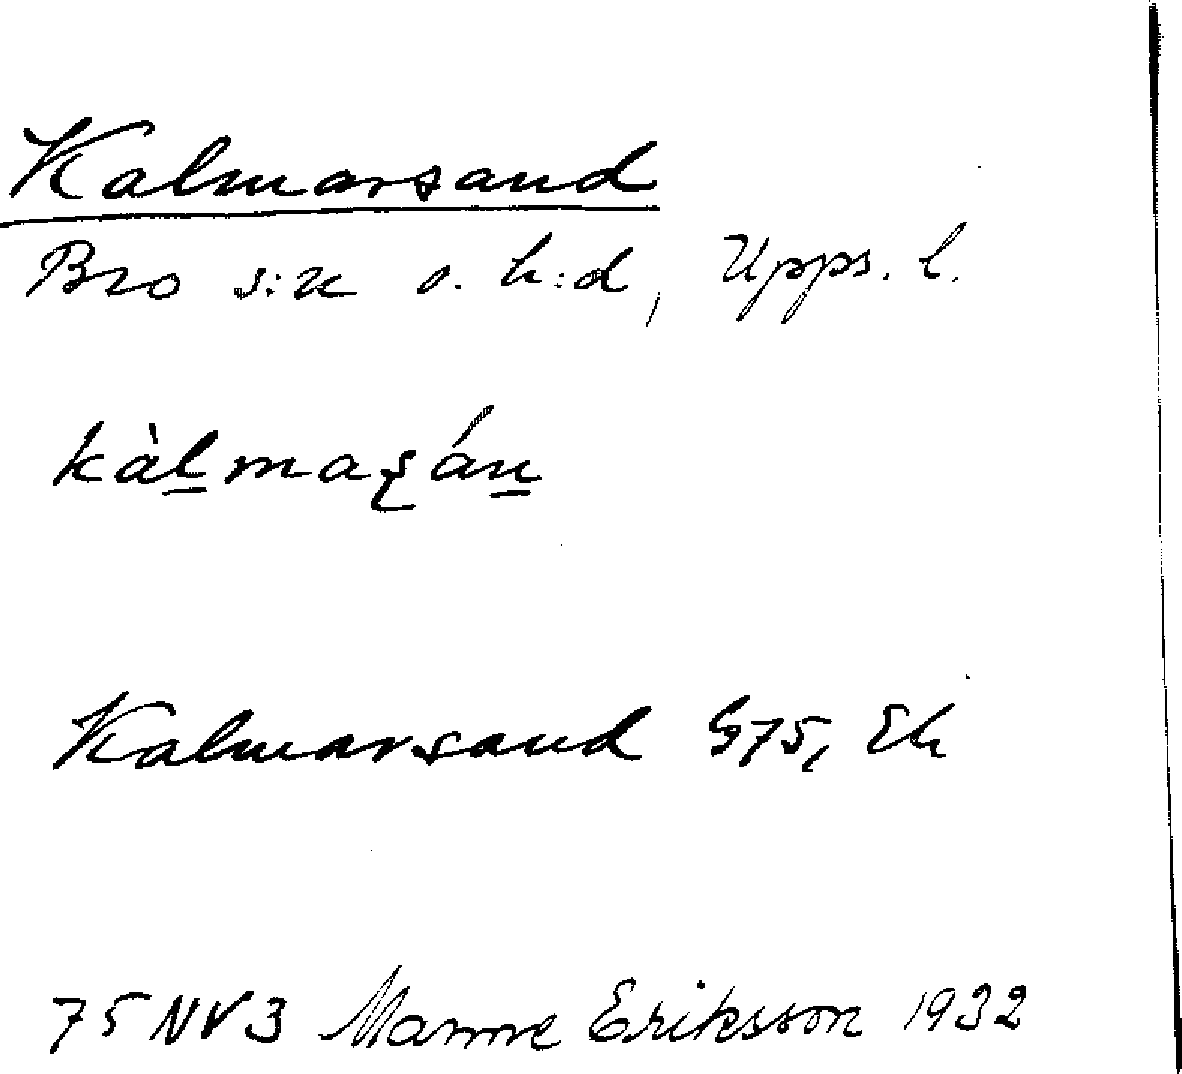 Kalmarsand
Bro s:n o. h:d, Upps. l.
kàl̠maʂán̠
Kalmarsand G75, Ek
75 NV 3 Manne Eriksson 1932